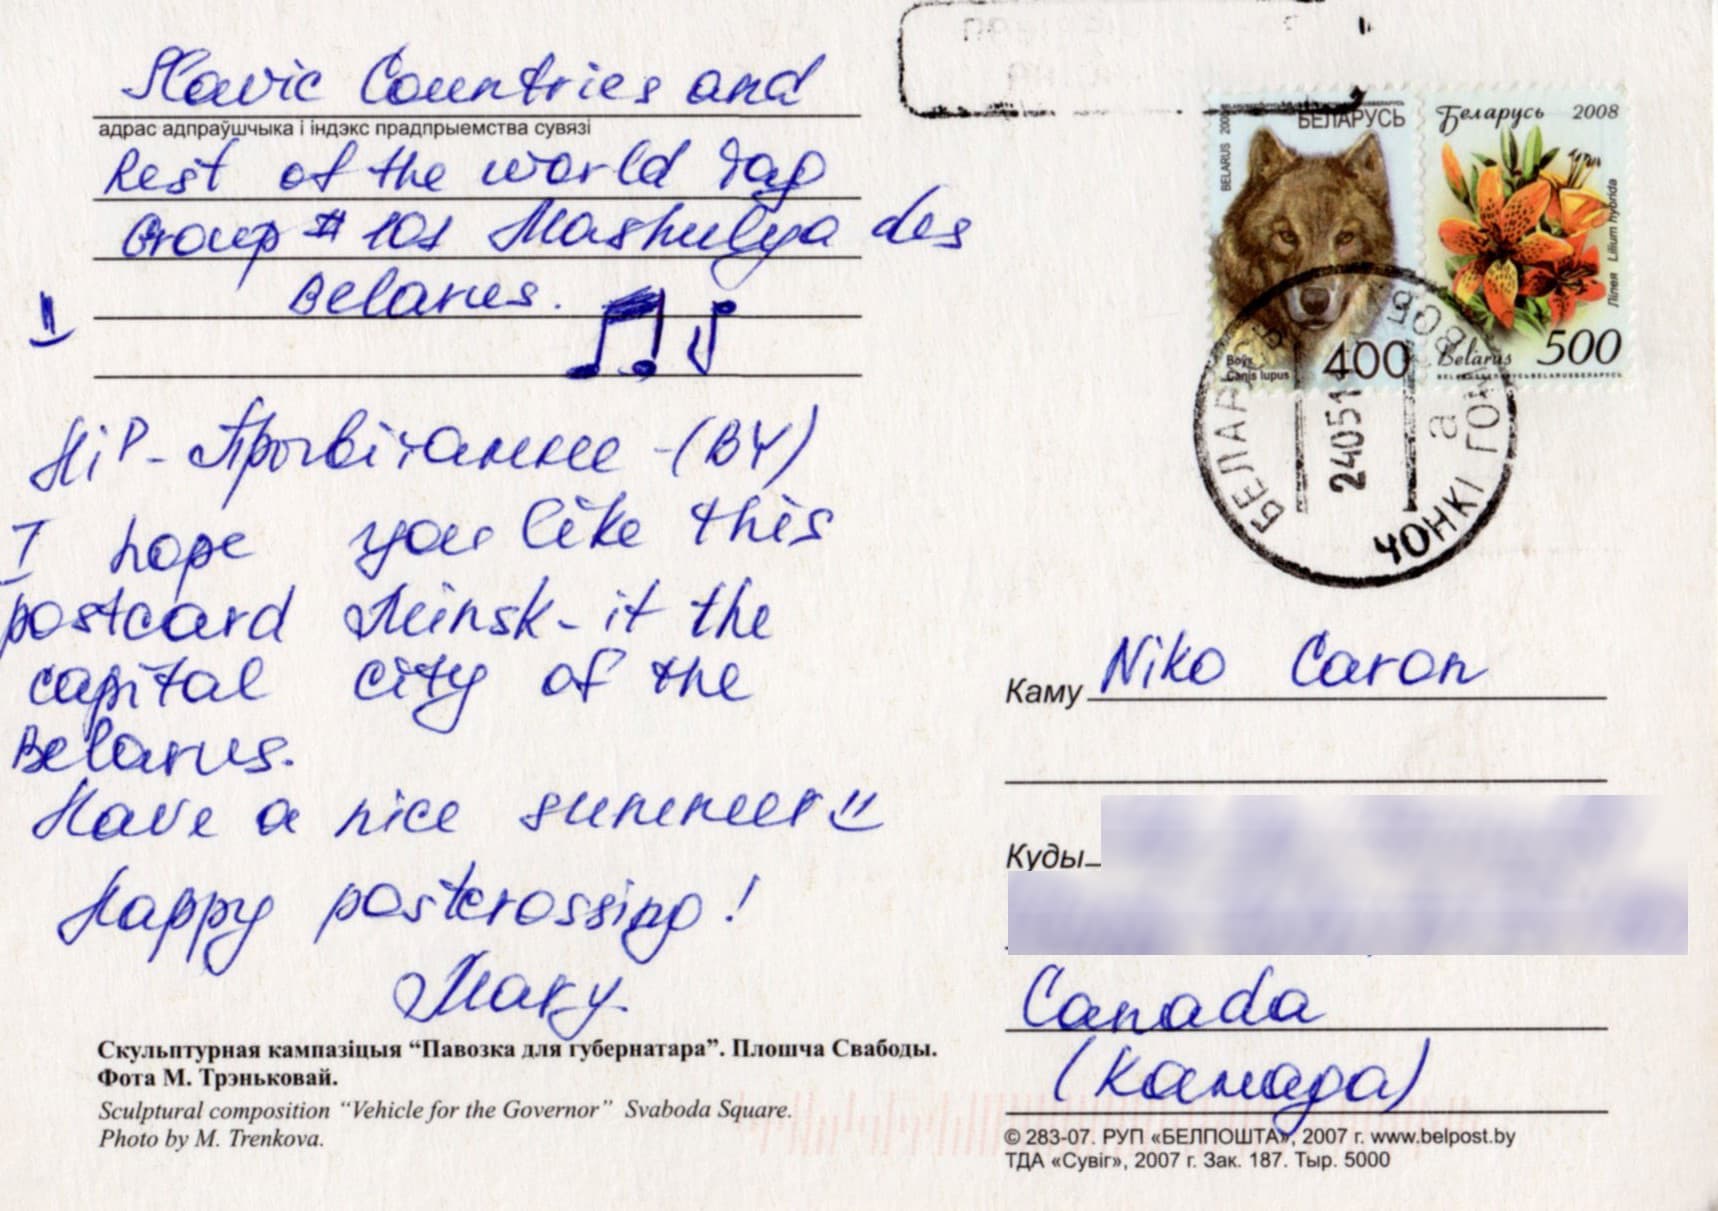 Slavic Countries and
адрас адпраўшчыка і індэкс прадпрыемства сувязі
Rest of the world Tag
Group # 101 Mashulya des
Belarus.
Hi! - Прывітанне - (BY)
I hope you like this
postcard Minsk - it the
capital city of the
Belarus.
Have a nice summer
Happy postcrossing!
Mary.
Скульптурная кампазіцыя “Павозка для губернатара”. Плошча Свабоды.
Фота М. Трэньковай.
Sculptural composition “Vehicle for the Governor” Svaboda Square.
Photo by M. Trenkova.
БЕЛАРУСЬ
BELARUS
Воўк
Canis lupus
400
Беларусь 2008
Лілея Lilium hybrida
Belarus 500
БЕЛАР
24051
а
ЧОНКІ
Каму Niko Caron
Куды
Canada
(Канада)
© 283-07. РУП «БЕЛПОШТА», 2007 г. www.belpost.by
ТДА «Сувіг», 2007 г. Зак. 187. Тыр. 5000